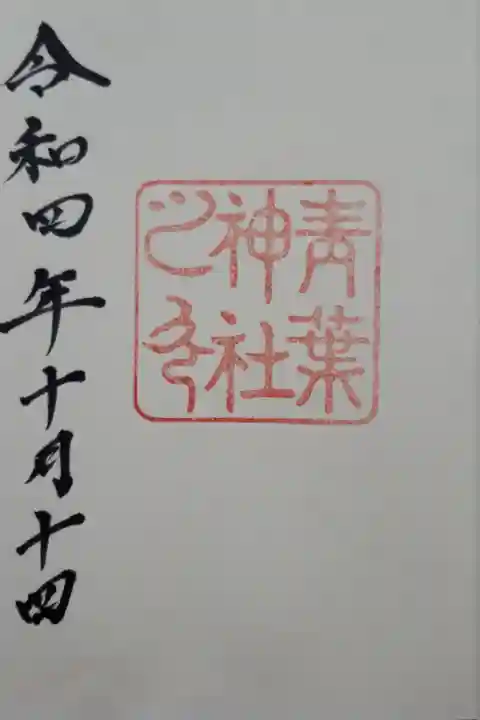 青葉
神社
之印
令和四年十月十四